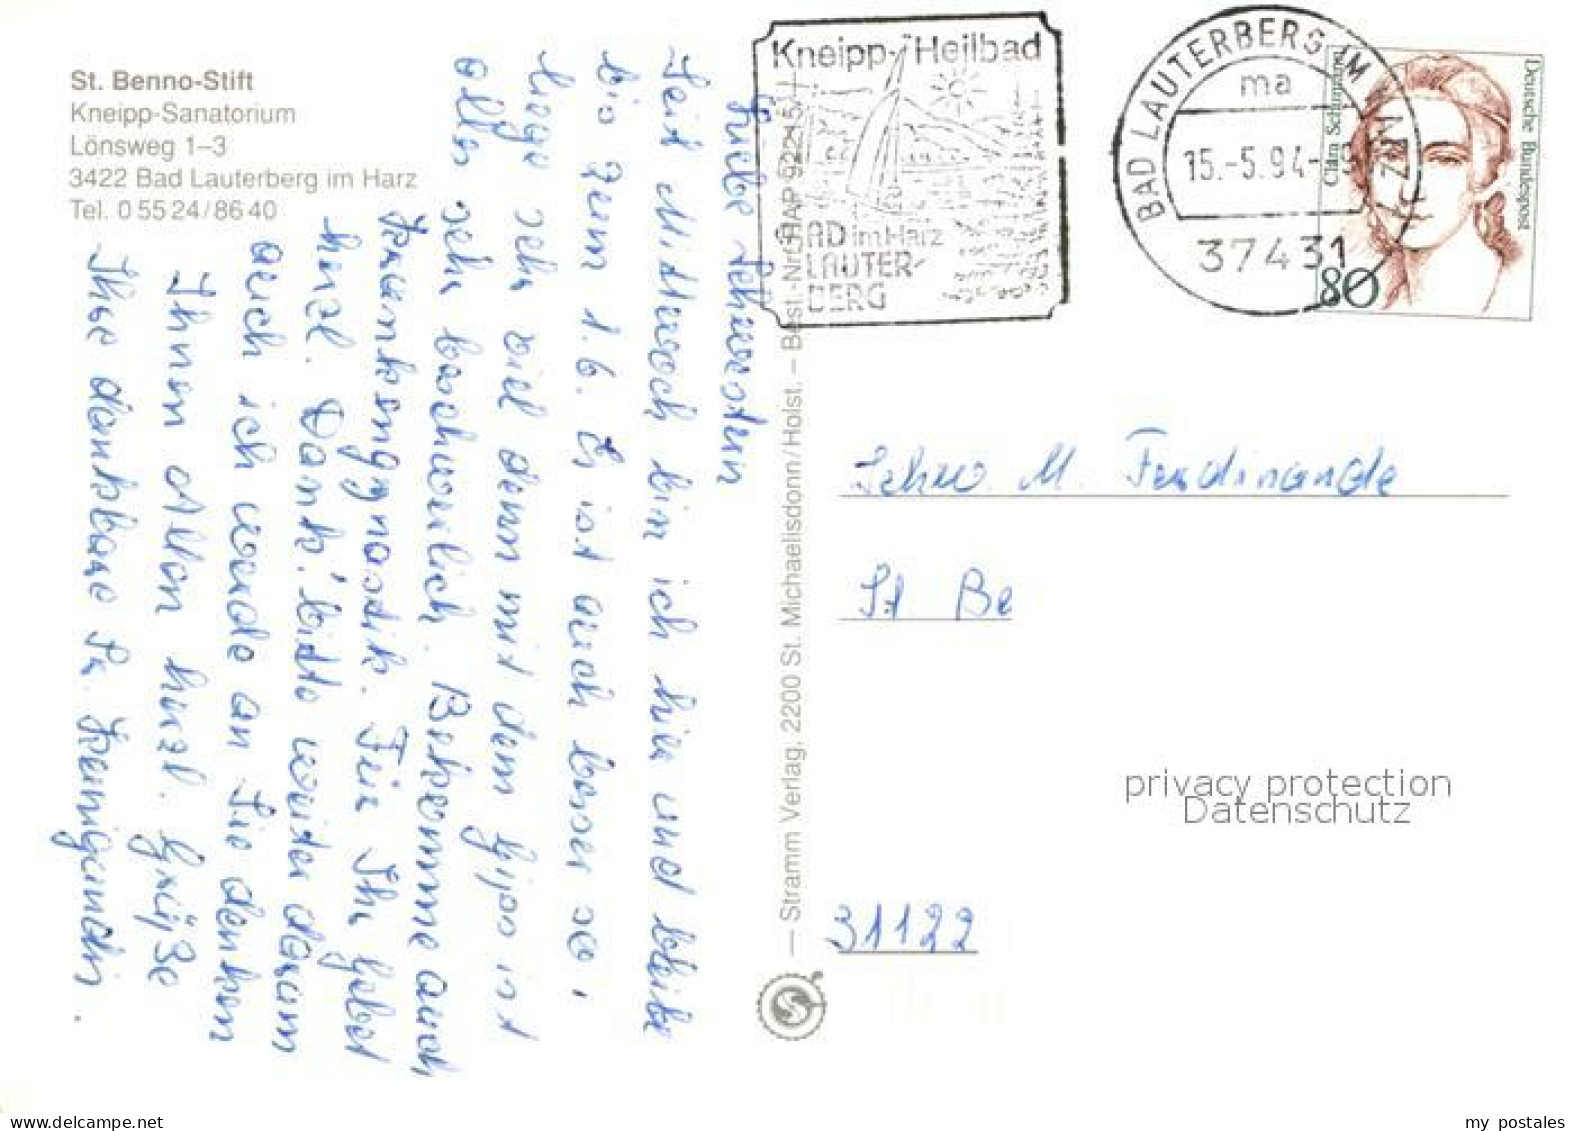 St. Benno-Stift
Kneipp-Sanatorium
Lönsweg 1–3
3422 Bad Lauterberg im Harz
Tel. 0 55 24/86 40
Liebe Schwestern
Seit Mittwoch bin ich hier und bleibe
bis zum 1.6. Es ist auch besser so,
liege sehr viel denn mit dem Gips ist
alles sehr beschwerlich. Bekomme auch
Krankengymnastik. Für Ihr Gebet
herzl. Dank! bitte weiter darum
auch ich werde an Sie denken
Ihnen Allen herzl. Grüße
Ihre dankbare Sr. Kunigundis.
— Stramm Verlag, 2200 St. Michaelisdonn/Holst. – Best.-Nr. HAP 92215
Kneipp-Heilbad
BAD im Harz
LAUTER-
BERG
BAD LAUTERBERG IM HARZ
ma
15.-5.94-
37431
Clara Schumann
Deutsche Bundespost
80
Schw. M. Ferdinande
St Be
privacy protection
Datenschutz
31122
delcampe.net
my_postales